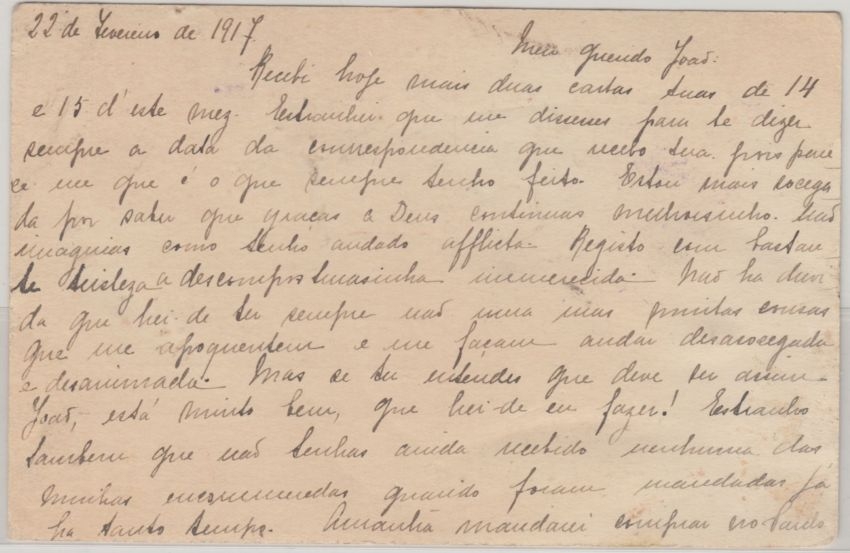 22 de Fevereiro de 1917.
Meu querido João:
Recebi hoje mais duas cartas tuas de 14
e 15 d'este mez. Estranhei que me dissesses para te dizer
sempre a data da correspondencia que recebo tua, pois pare
ce me que é o que sempre tenho feito. Estou mais socega
da por saber que graças a Deus continuas melhorsinho. Não
imaginas como tenho andado afflicta. Registo com bastan
te tristeza a descomposturasinha immerecida. Não ha duvi
da que hei-de ter sempre não uma mas muitas cousas
que me apoquentem e me façam andar desasocegada
e desanimada. Mas se tu entendes que deve ser assim
João, está muito bem, que hei-de eu fazer! Estranho
tambem que não tenhas ainda recebido nenhuma das
minhas encommendas quando foram mandadas já
ha tanto tempo. Amanhã mandarei comprar no